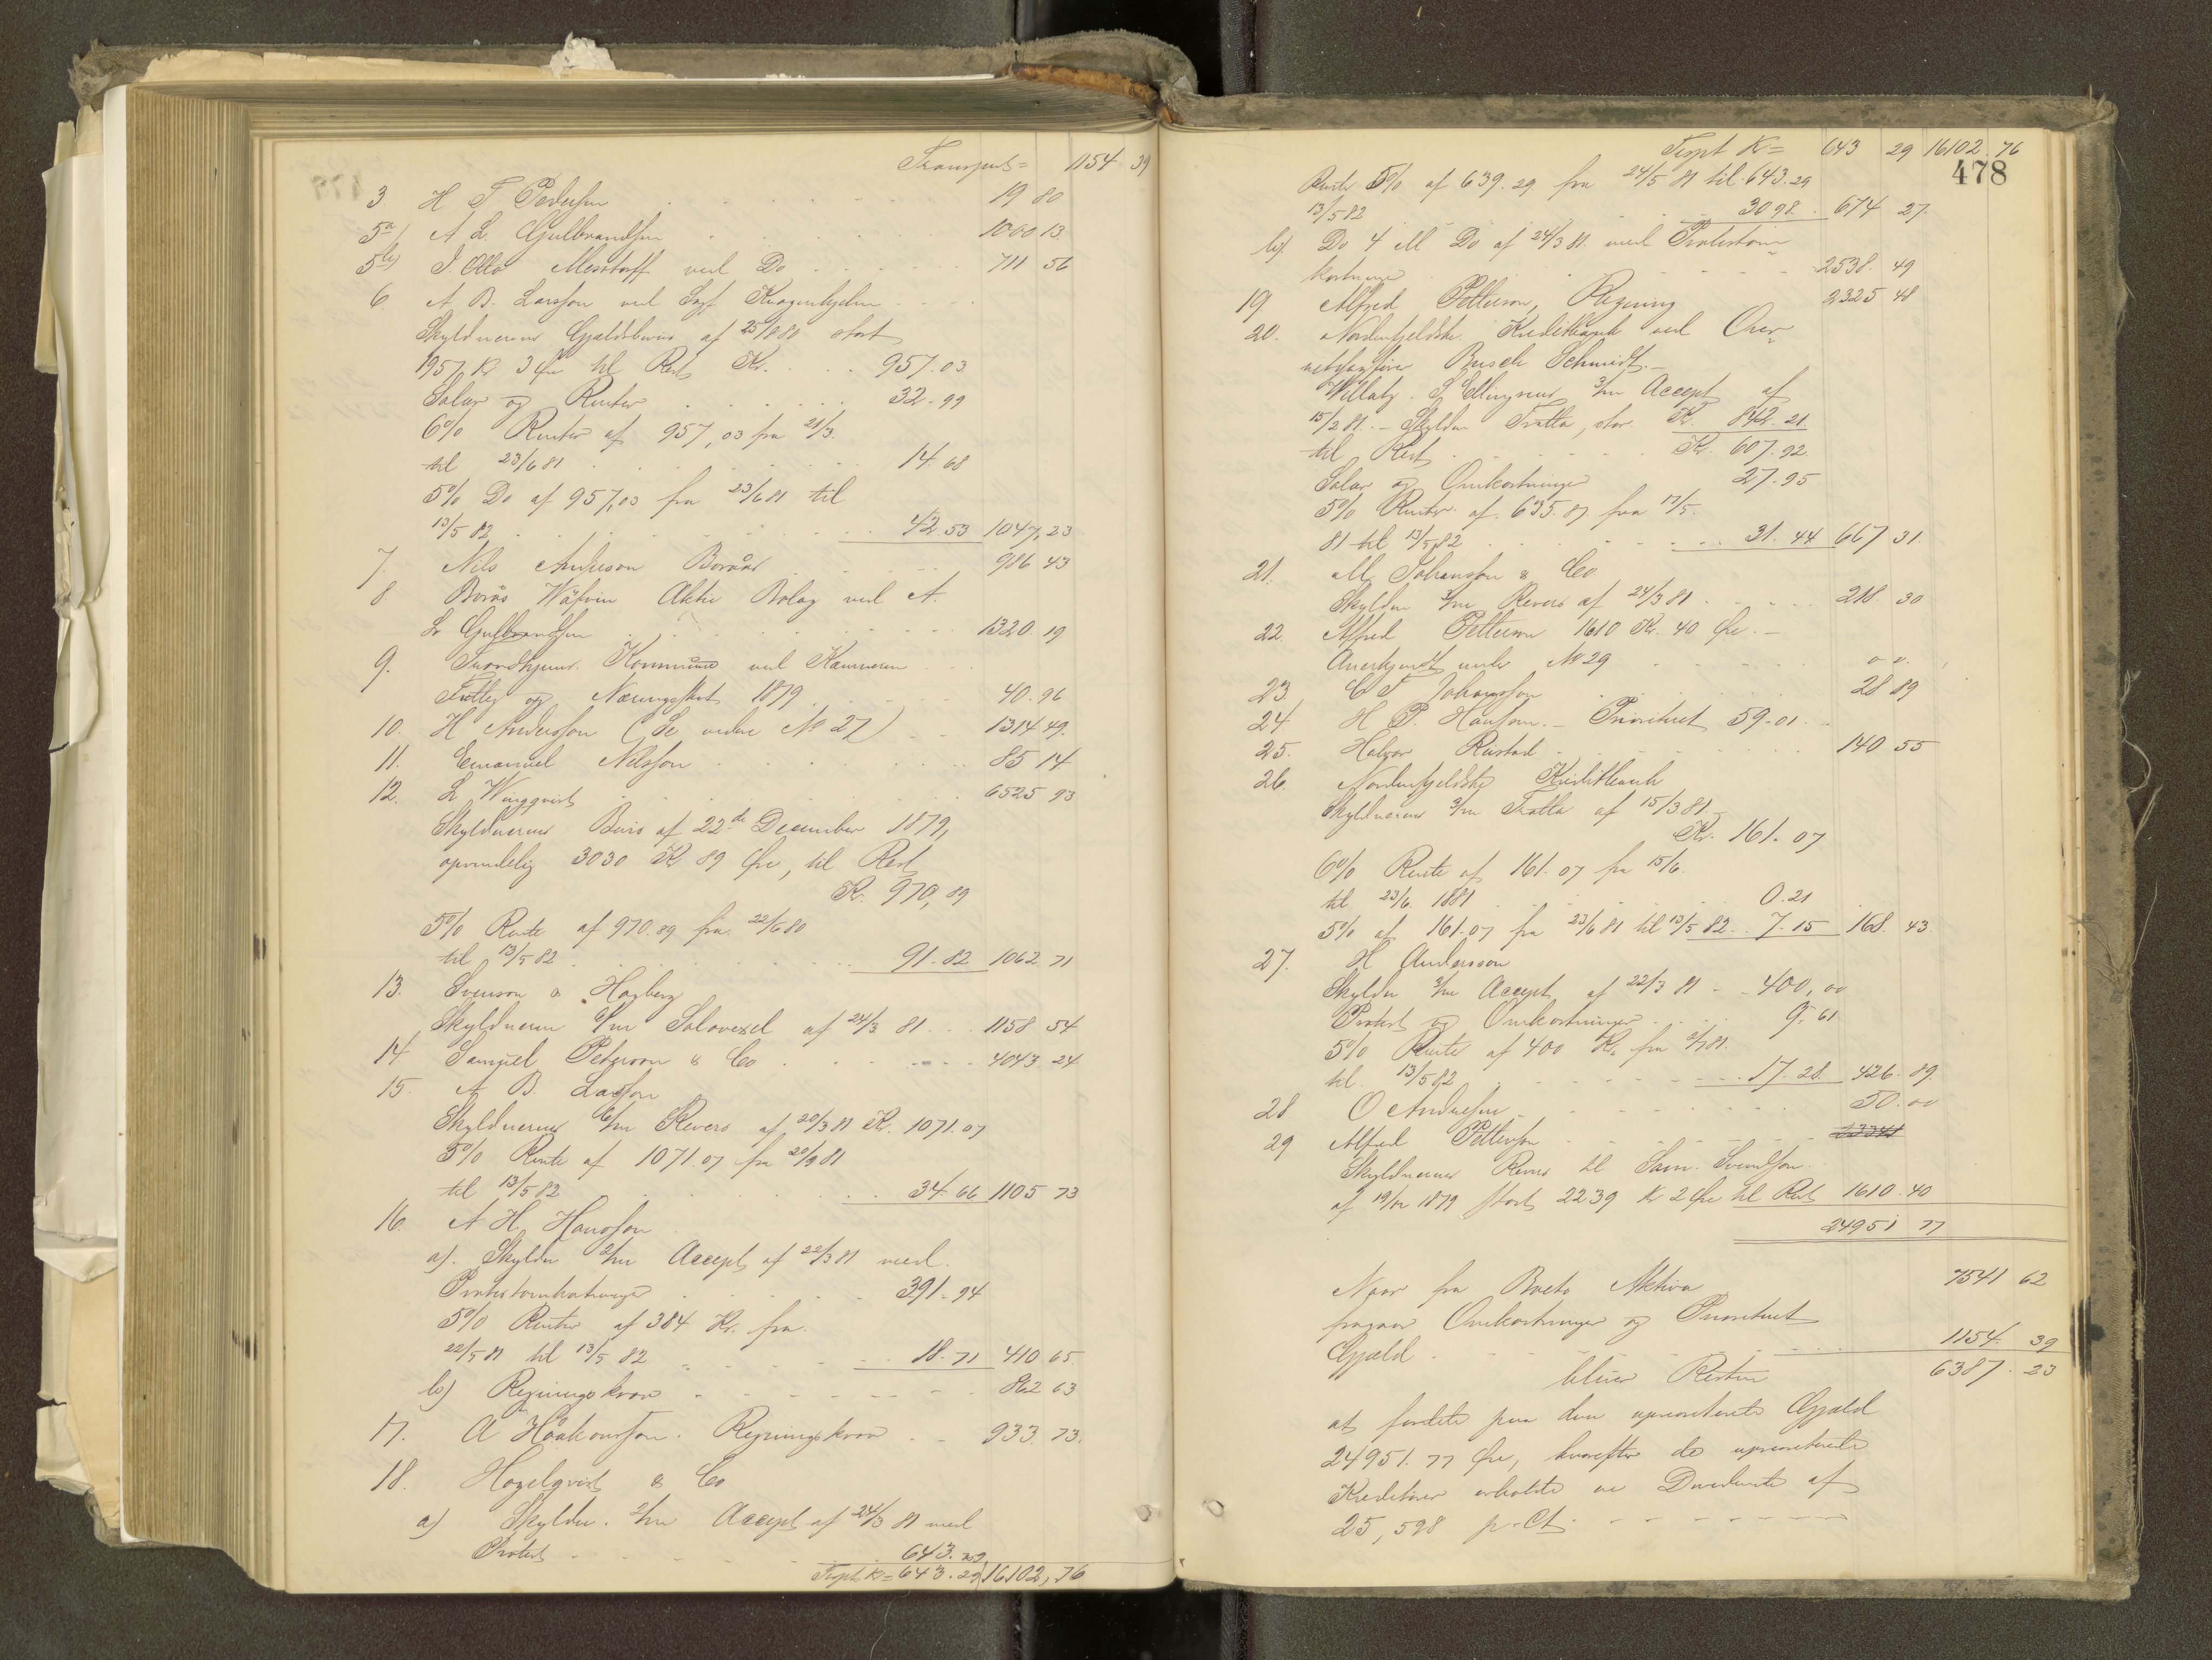 Transport = 1154 39
3 H T Pedersen 19 80
5 a) A L. Gulbrandsen 1060 13
5 b) J. Otto Messtorff ved Do 711 56
6. A B. Larsson ved Sagf
Skyldnerens Gjældsbevis af 25/10 80 stort
1957 Kr 3 Øre til Rest Kr. 957.03
Salær og Renter 32-99
6% Renter af 957,03 fra 21/3.
til 23/6 81 14.68
5% Do af 957,03 fra 23/6 81 til
13/5 82 42.53 1047,23
7. Nils Anderson Borås 986 43
8. Borås Wäfveri Aktie Bolag ved A.
L Gulbrandsen 1320.19
9. Trondhjems Kommune ved Kæmneren
Fattig og Næringsskat 1879 40.96
10. H Andersson (Se videre No 27) 1314 49.
11. Emanuel Nilsson 85 14
12. L Wingqvist 6525 93
Skyldnerens Bevis af 22de December 1879,
oprindelig 3030 Kr 89 Øre, til Rest
Kr. 970,89
5% Rente af 970.89 fra 22/6 80
til 13/5 82 91-82 1062 71
13. Svenson & Hagberg
Skyldneren 6/m Solavexel af 24/3 81 1158 54
14 Samuel Peterson & Co 4043 24
15. A B. Larsson
Skyldnerens 6/m Revers af 20/3 81 Kr. 1071.07
5% Rente af 1071.07 fra 20/9 81
til 13/5 82 34.66 1105 73
16. A H. Hansson
a). Skyldn 2/m Accept af 22/3 81 med
Protestomkostninger 391-94
5% Renter af 384 Kr. fra
22/5 81 til 13/5 82 18.71 410 65
b) Regningskrav 862 63
17. A Haakonsson. Regningskrav 933.73.
18. Hagelqvist & Co
a) Skyldn. 2/m Accept af 24/3 81 med
Protest 643.29
Trspt Kr = 643.29 16102,76
Trspt Kr = 643 29 16102.76
478
Rente 5% af 639.29 fra 24/5 81 til 643.29
13/5 82 30 98 674 27.
b). Do 4 M Do af 24/3 81 med Protestom
kostninger 2538.49
19 Alfred Petterson, Regning 2325 48
20. Nordenfjeldske Kreditbank ved Over
retssagfører Busch Schmidt.-
3/m Accept af
15/2 81.- Skyldn Tratta, stor Kr. 842.21
til Rest Kr. 607.92
Salær og Omkostninger 27.95
5% Renter af 635.87 fra 17/5.
81 til 13/5 82 31.44 667 31.
21. M. Johansson & Co
Skyldn 3/m Revers af 24/3 81 218 30
22. Alfred Petterson 1610 Kr. 40 Øre.-
Anerkjendt under No 29 " "
23. C F Johansson 28 89
24. H P. Hansom.- Prioritet 59.01.
25. Halvor Rustad 140 55
26. Nordenfjeldske Kreditbank
Skyldnerens 3/m Tratta af 15/3 81.
Kr. 161.07
6% Rente af 161.07 fra 15/6.
til 23/6. 1881 0.21
5% af 161.07 fra 23/6 81 til 13/5 82 7.15 168.43
27. H Andersson
Skyldn 3/m Accept af 22/3 81 400,00
Protest og Omkostninger 9.61
5% Rente af 400 Kr. fra 2/7 81.
til 13/5 82 17.28 426.89
28. O Andresen 50.00
29 Alfred Petterson
Skyldnerens Revers til Sam. Svendson
af 19/12 1879 stort 2239 Kr 2 Øre til Rest 1610.40
24951 77
Naar fra Boets Aktiva 7541 62
fragaar Omkostninger og Prioritet
Gjæld 1154.39
bliver Resten 6387.23
at fordele paa den uprioriterte Gjæld
24951.77 Øre, hvorefter de uprioriterede
Kreditorer erholde en Dividende af
25,598 p.Ct.